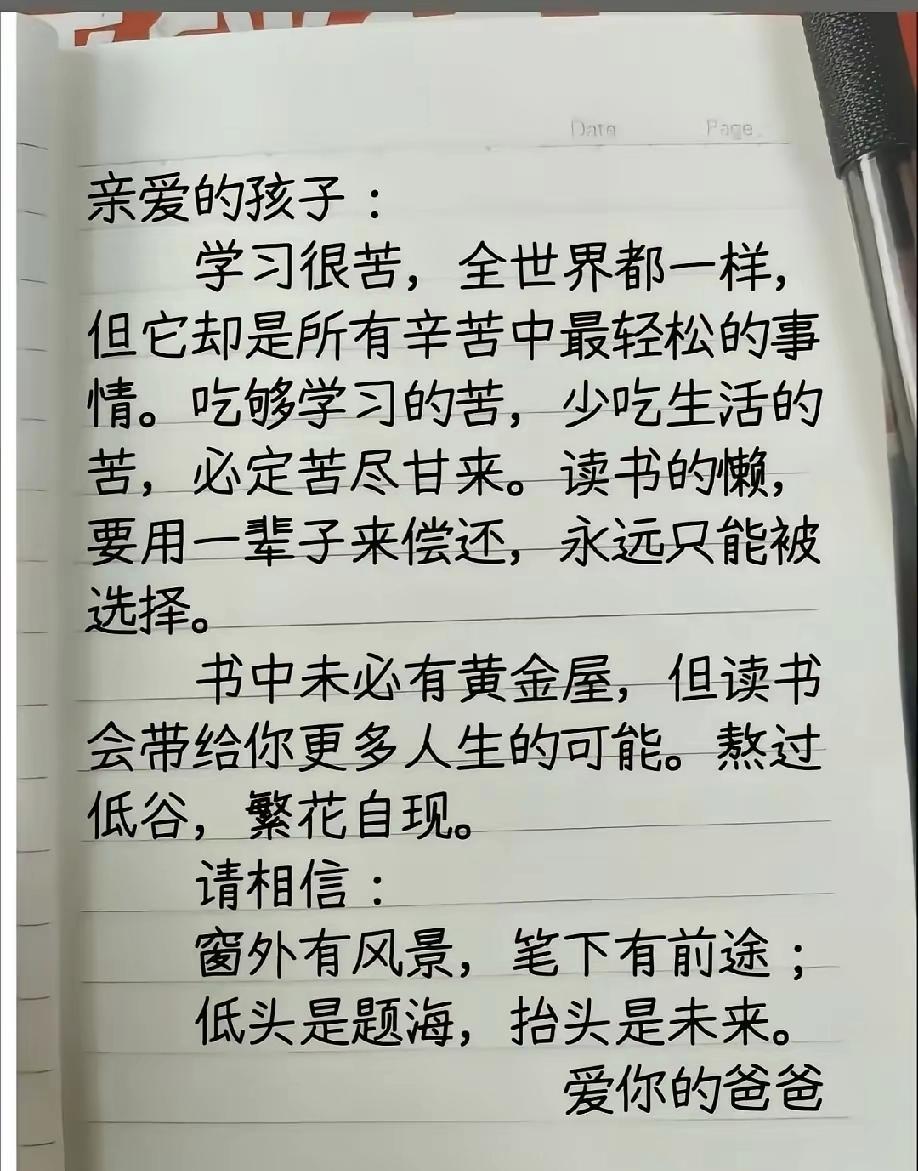 Date Page.
亲爱的孩子：
学习很苦，全世界都一样，
但它却是所有辛苦中最轻松的事
情。吃够学习的苦，少吃生活的
苦，必定苦尽甘来。读书的懒，
要用一辈子来偿还，永远只能被
选择。
书中未必有黄金屋，但读书
会带给你更多人生的可能。熬过
低谷，繁花自现。
请相信：
窗外有风景，笔下有前途；
低头是题海，抬头是未来。
爱你的爸爸